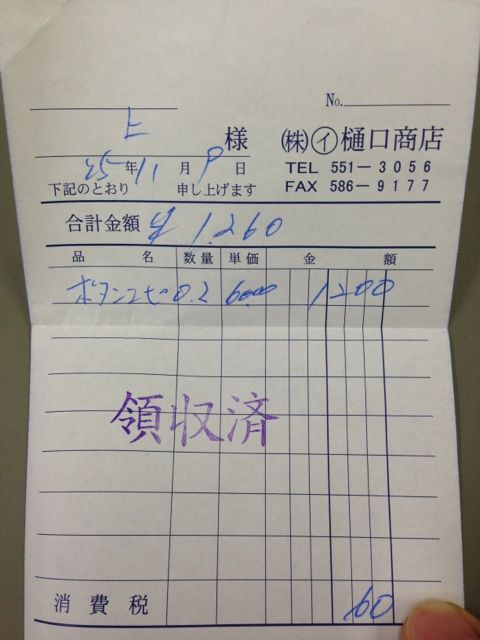 No.
上 様
㈱㋑樋口商店
25年11月9日
TEL 551-3056
下記のとおり 申し上げます
FAX 586-9177
合計金額 ¥1,260
品名 数量 単価 金額
ボタンエビ 0.2 6000 1200
領収済
消費税 60